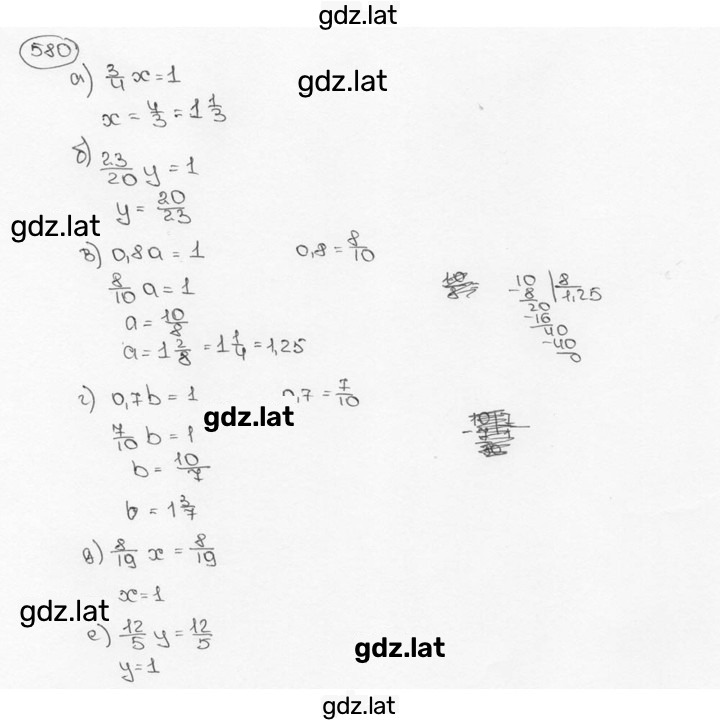 gdz.lat
580
а) 3/4 x = 1
gdz.lat
x = 4/3 = 1 1/3
б) 23/20 y = 1
y = 20/23
gdz.lat
в) 0,8a = 1    0,8 = 8/10
8/10 a = 1
a = 10/8
a = 1 2/8 = 1 1/4 = 1,25
10 | 8
- 8 | 1,25
20
- 16
40
- 40
0
г) 0,7b = 1    0,7 = 7/10
gdz.lat
7/10 b = 1
b = 10/7
b = 1 3/7
д) 8/19 x = 8/19
x = 1
gdz.lat
е) 12/5 y = 12/5
gdz.lat
y = 1
gdz.lat